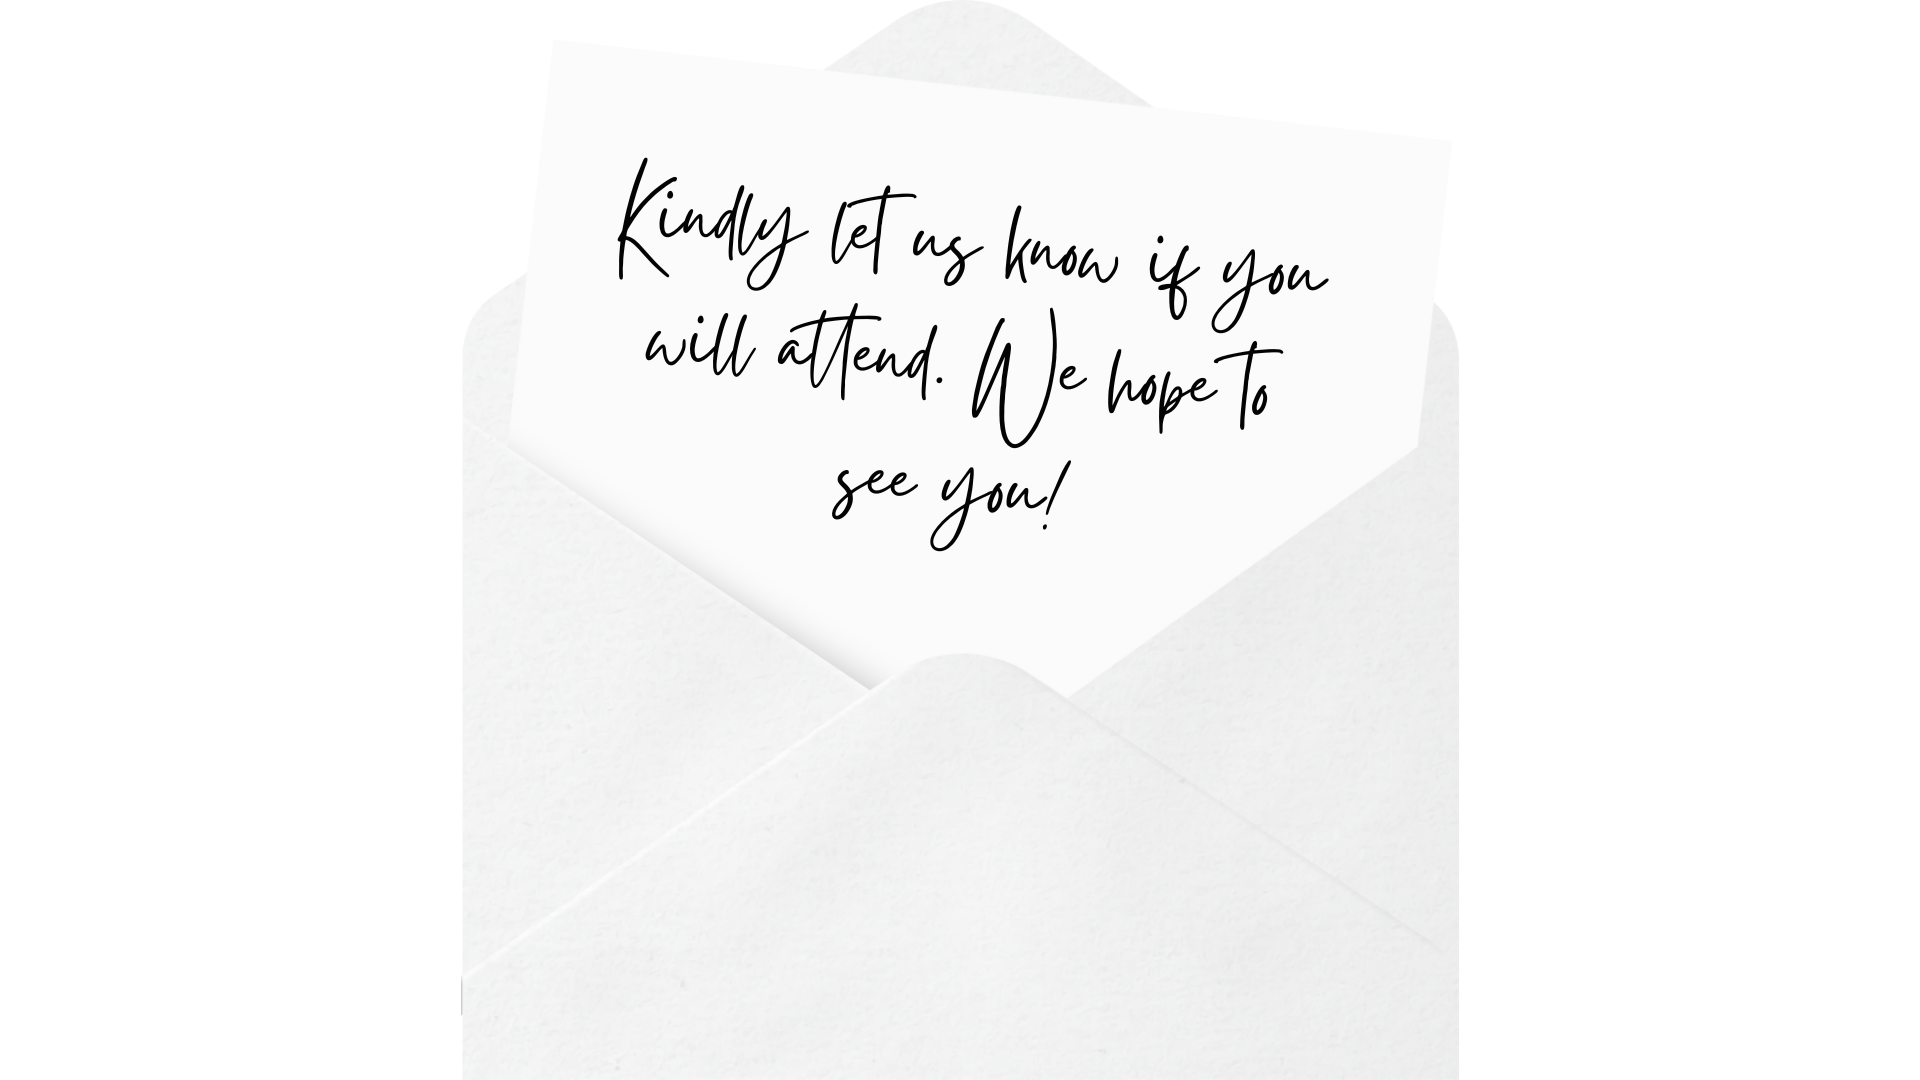 Kindly let us know if you
will attend. We hope to
see you!